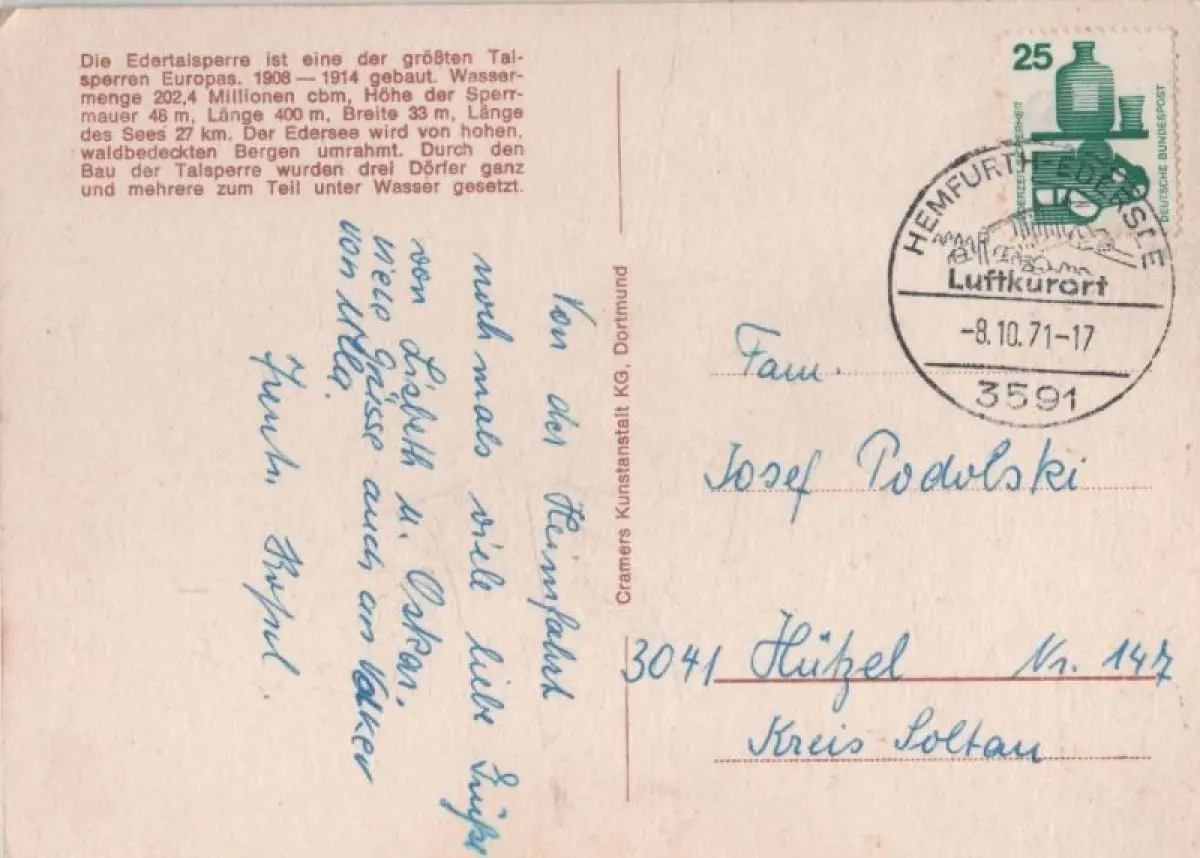 Die Edertalsperre ist eine der größten Tal-
sperren Europas. 1908 — 1914 gebaut. Wasser-
menge 202,4 Millionen cbm, Höhe der Sperr-
mauer 48 m, Länge 400 m, Breite 33 m, Länge
des Sees 27 km. Der Edersee wird von hohen,
waldbedeckten Bergen umrahmt. Durch den
Bau der Talsperre wurden drei Dörfer ganz
und mehrere zum Teil unter Wasser gesetzt.
Von der Heimfahrt
nochmals viele liebe Grüße
von Lisbeth u. Oskar.
viele Grüsse auch an Volker
von
Cramers Kunstanstalt KG, Dortmund
25
DEUTSCHE BUNDESPOST
HEMFURTH-EDERSEE
Luftkurort
-8.10.71-17
3591
Fam.
Josef Podolski
3041 Hützel Nr. 147
Kreis Soltau